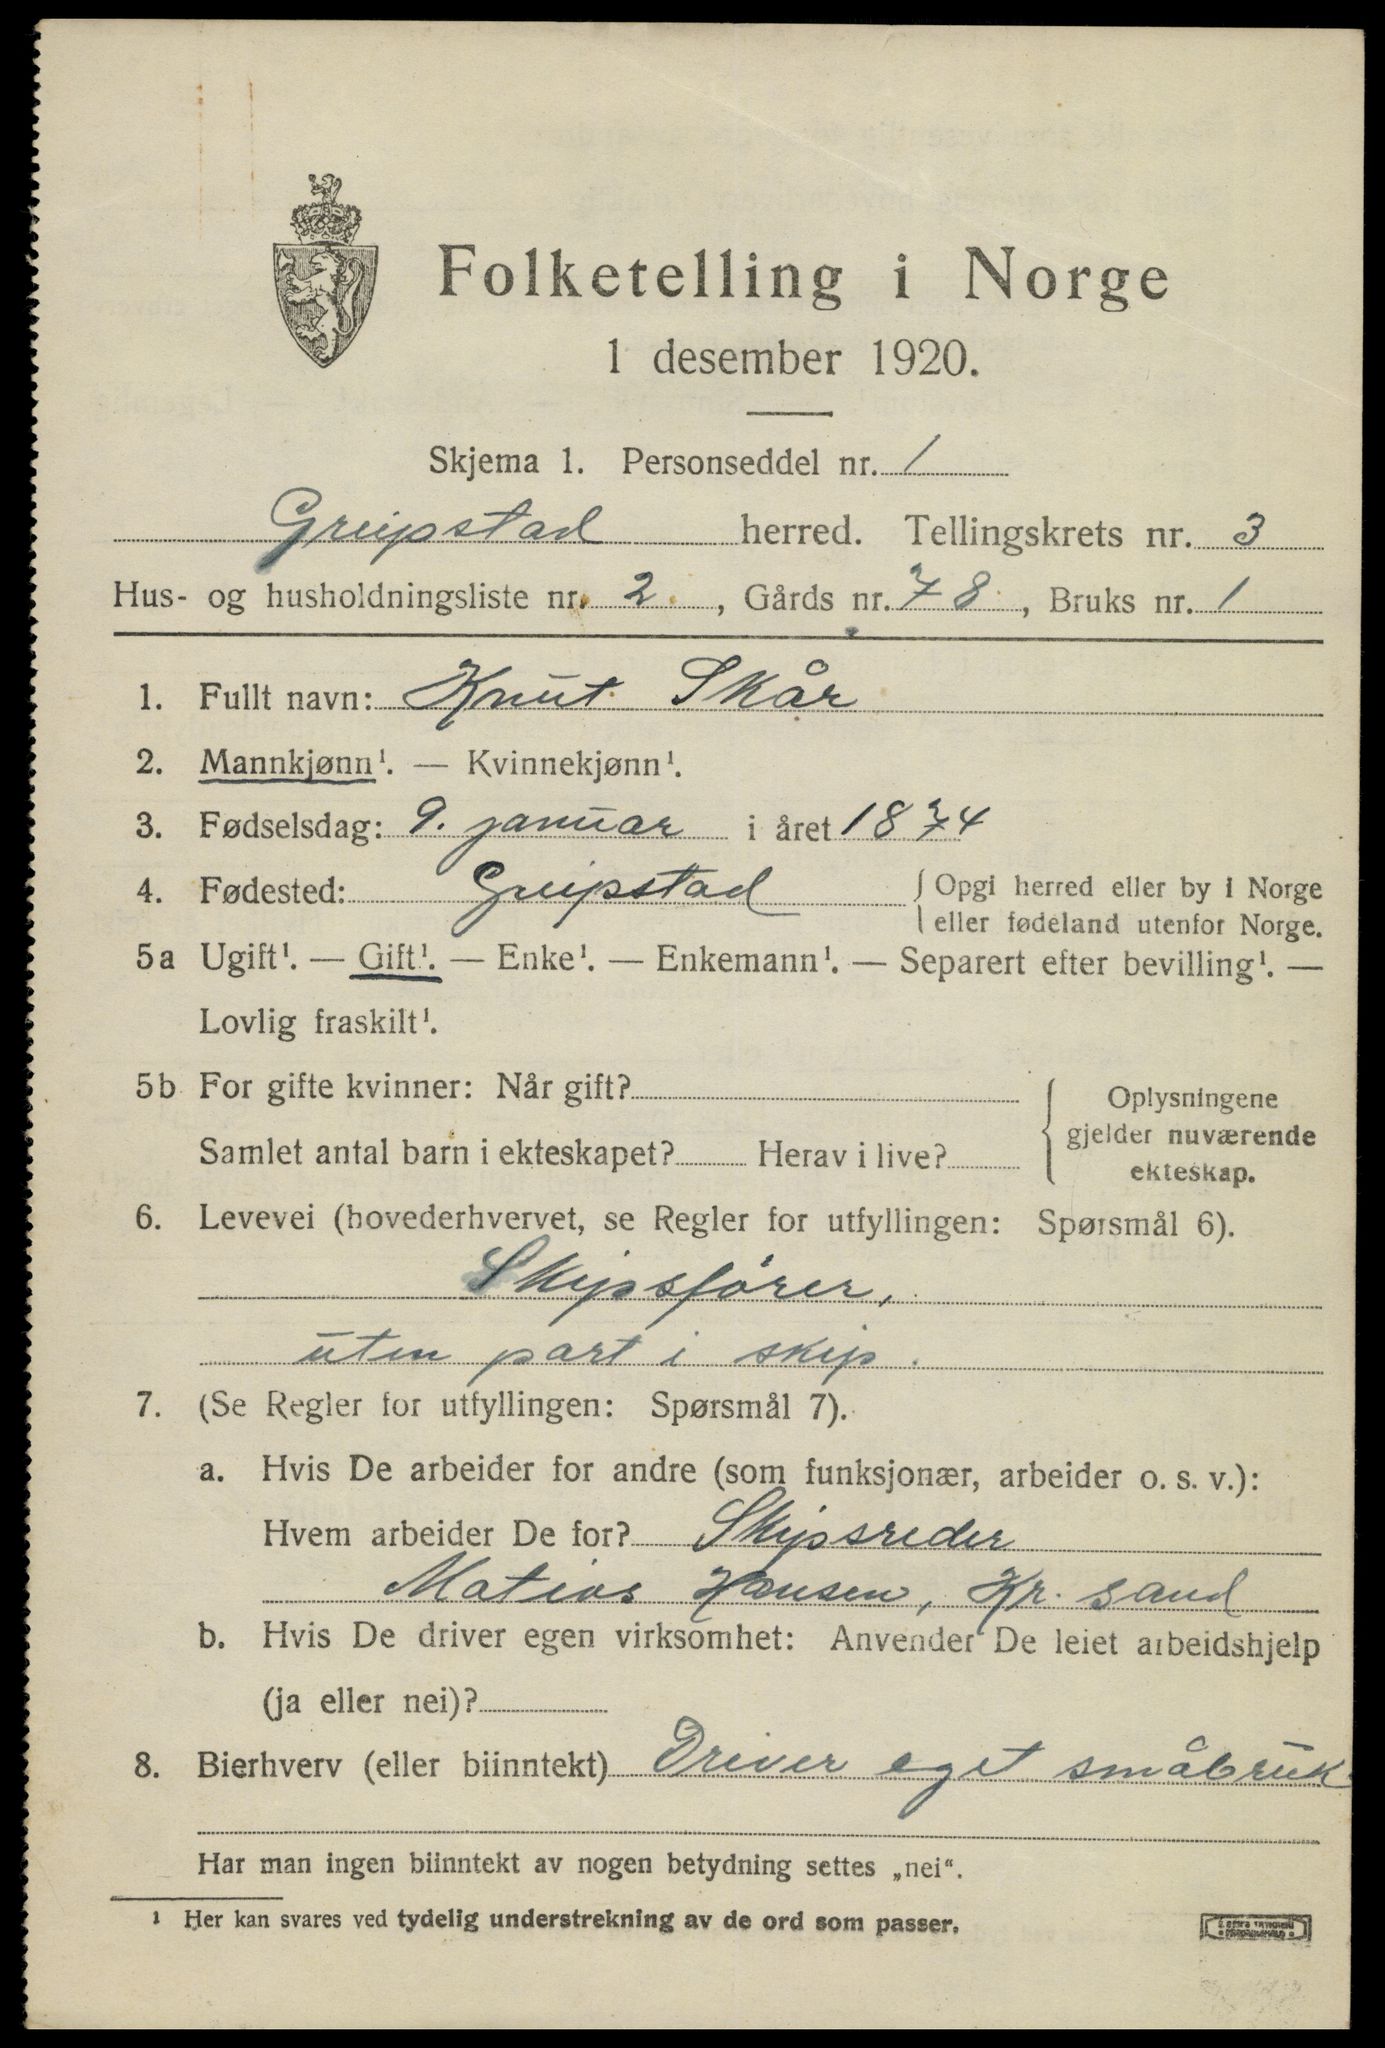 Folketelling i Norge
1 desember 1920.
Skjema 1. Personseddel nr. 1
Greipstad herred. Tellingskrets nr. 3
Hus- og husholdningsliste nr. 2, Gårds nr. 78, Bruks nr. 1
1. Fullt navn: Knut Skår
2. Mannkjønn¹. — Kvinnekjønn¹.
3. Fødselsdag: 9. januar i året 1874
4. Fødested: Greipstad { Opgi herred eller by i Norge
eller fødeland utenfor Norge.
5a Ugift¹. — Gift¹. — Enke¹. — Enkemann¹. — Separert efter bevilling¹. —
Lovlig fraskilt¹.
5b For gifte kvinner: Når gift?
Samlet antal barn i ekteskapet? Herav i live?
Oplysningene
gjelder nuværende
ekteskap.
6. Levevei (hovederhvervet, se Regler for utfyllingen: Spørsmål 6).
Skipsfører,
uten part i skip.
7. (Se Regler for utfyllingen: Spørsmål 7).
a. Hvis De arbeider for andre (som funksjonær, arbeider o. s. v.):
Hvem arbeider De for? Skipsreder
Matias Hansen, Kr. sand
b. Hvis De driver egen virksomhet: Anvender De leiet arbeidshjelp
(ja eller nei)?
8. Bierhverv (eller biinntekt) Driver eget småbruk
Har man ingen biinntekt av nogen betydning settes „nei“.
1 Her kan svares ved tydelig understrekning av de ord som passer.